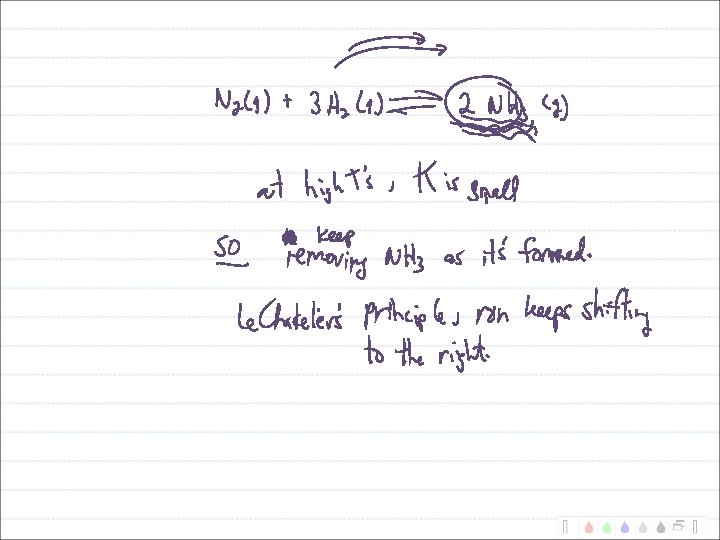 N₂(g) + 3H₂(g) ⇌ 2 NH₃ (g)
at high T's, K is small
so keep
removing NH₃ as it's formed.
LeChatelier's principle, rxn keeps shifting
to the right.